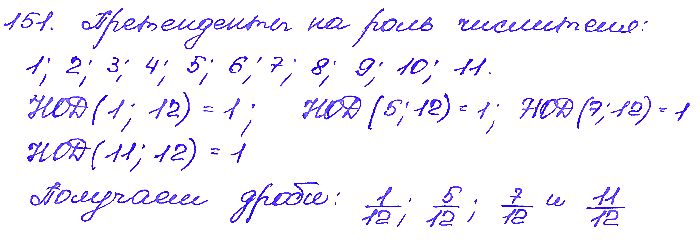 151. Претенденты на роль числителя:
1; 2; 3; 4; 5; 6; 7; 8; 9; 10; 11.
НОД(1; 12) = 1; НОД(5; 12) = 1; НОД(7; 12) = 1
НОД(11; 12) = 1
Получаем дроби: 1/12; 5/12; 7/12 и 11/12